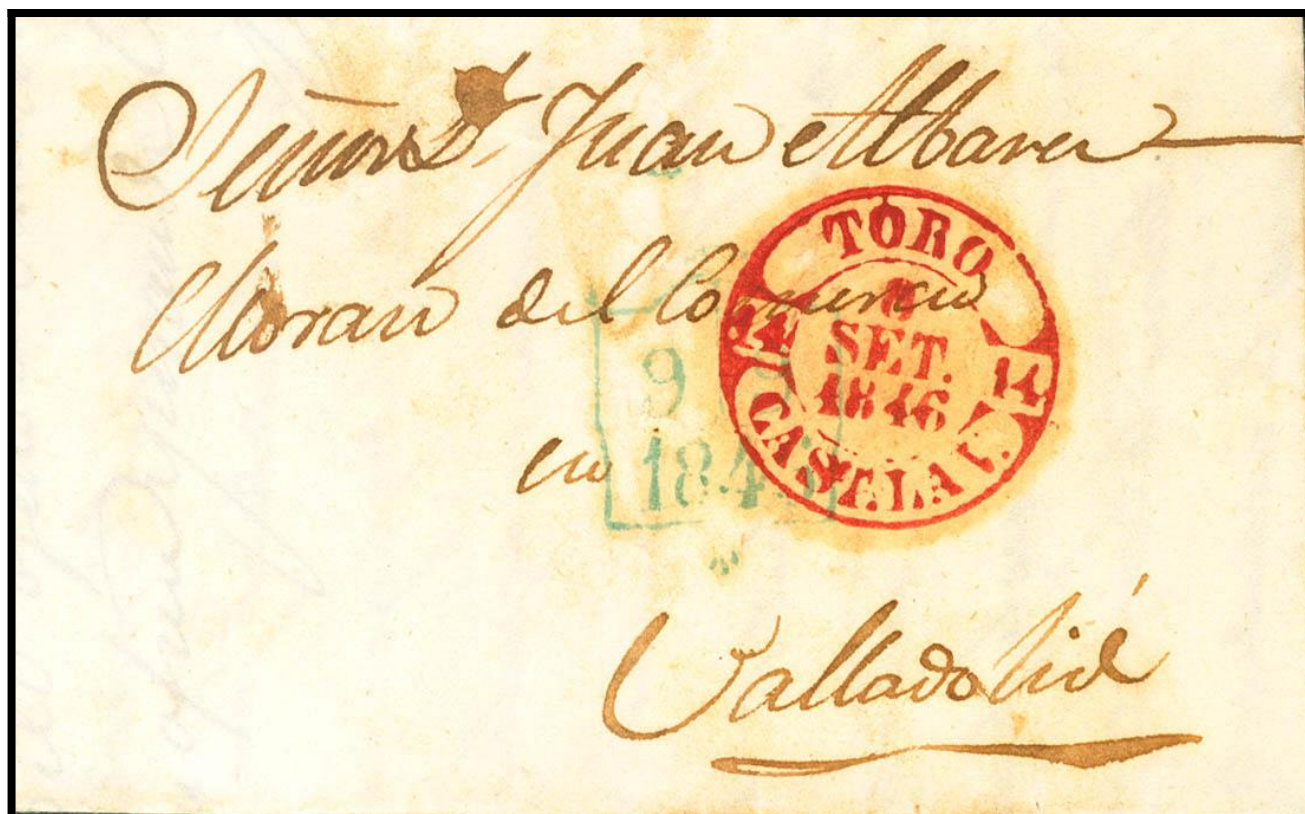 Señor Dn. Juan Albarez
Moran del Comercio
en
Valladolid
TORO
SET.
1846
14 14
CAST.LA V.
9 S
1846